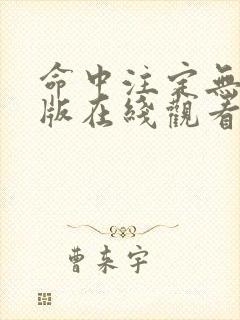 命中注定無
版在綫觀看
曹东宇